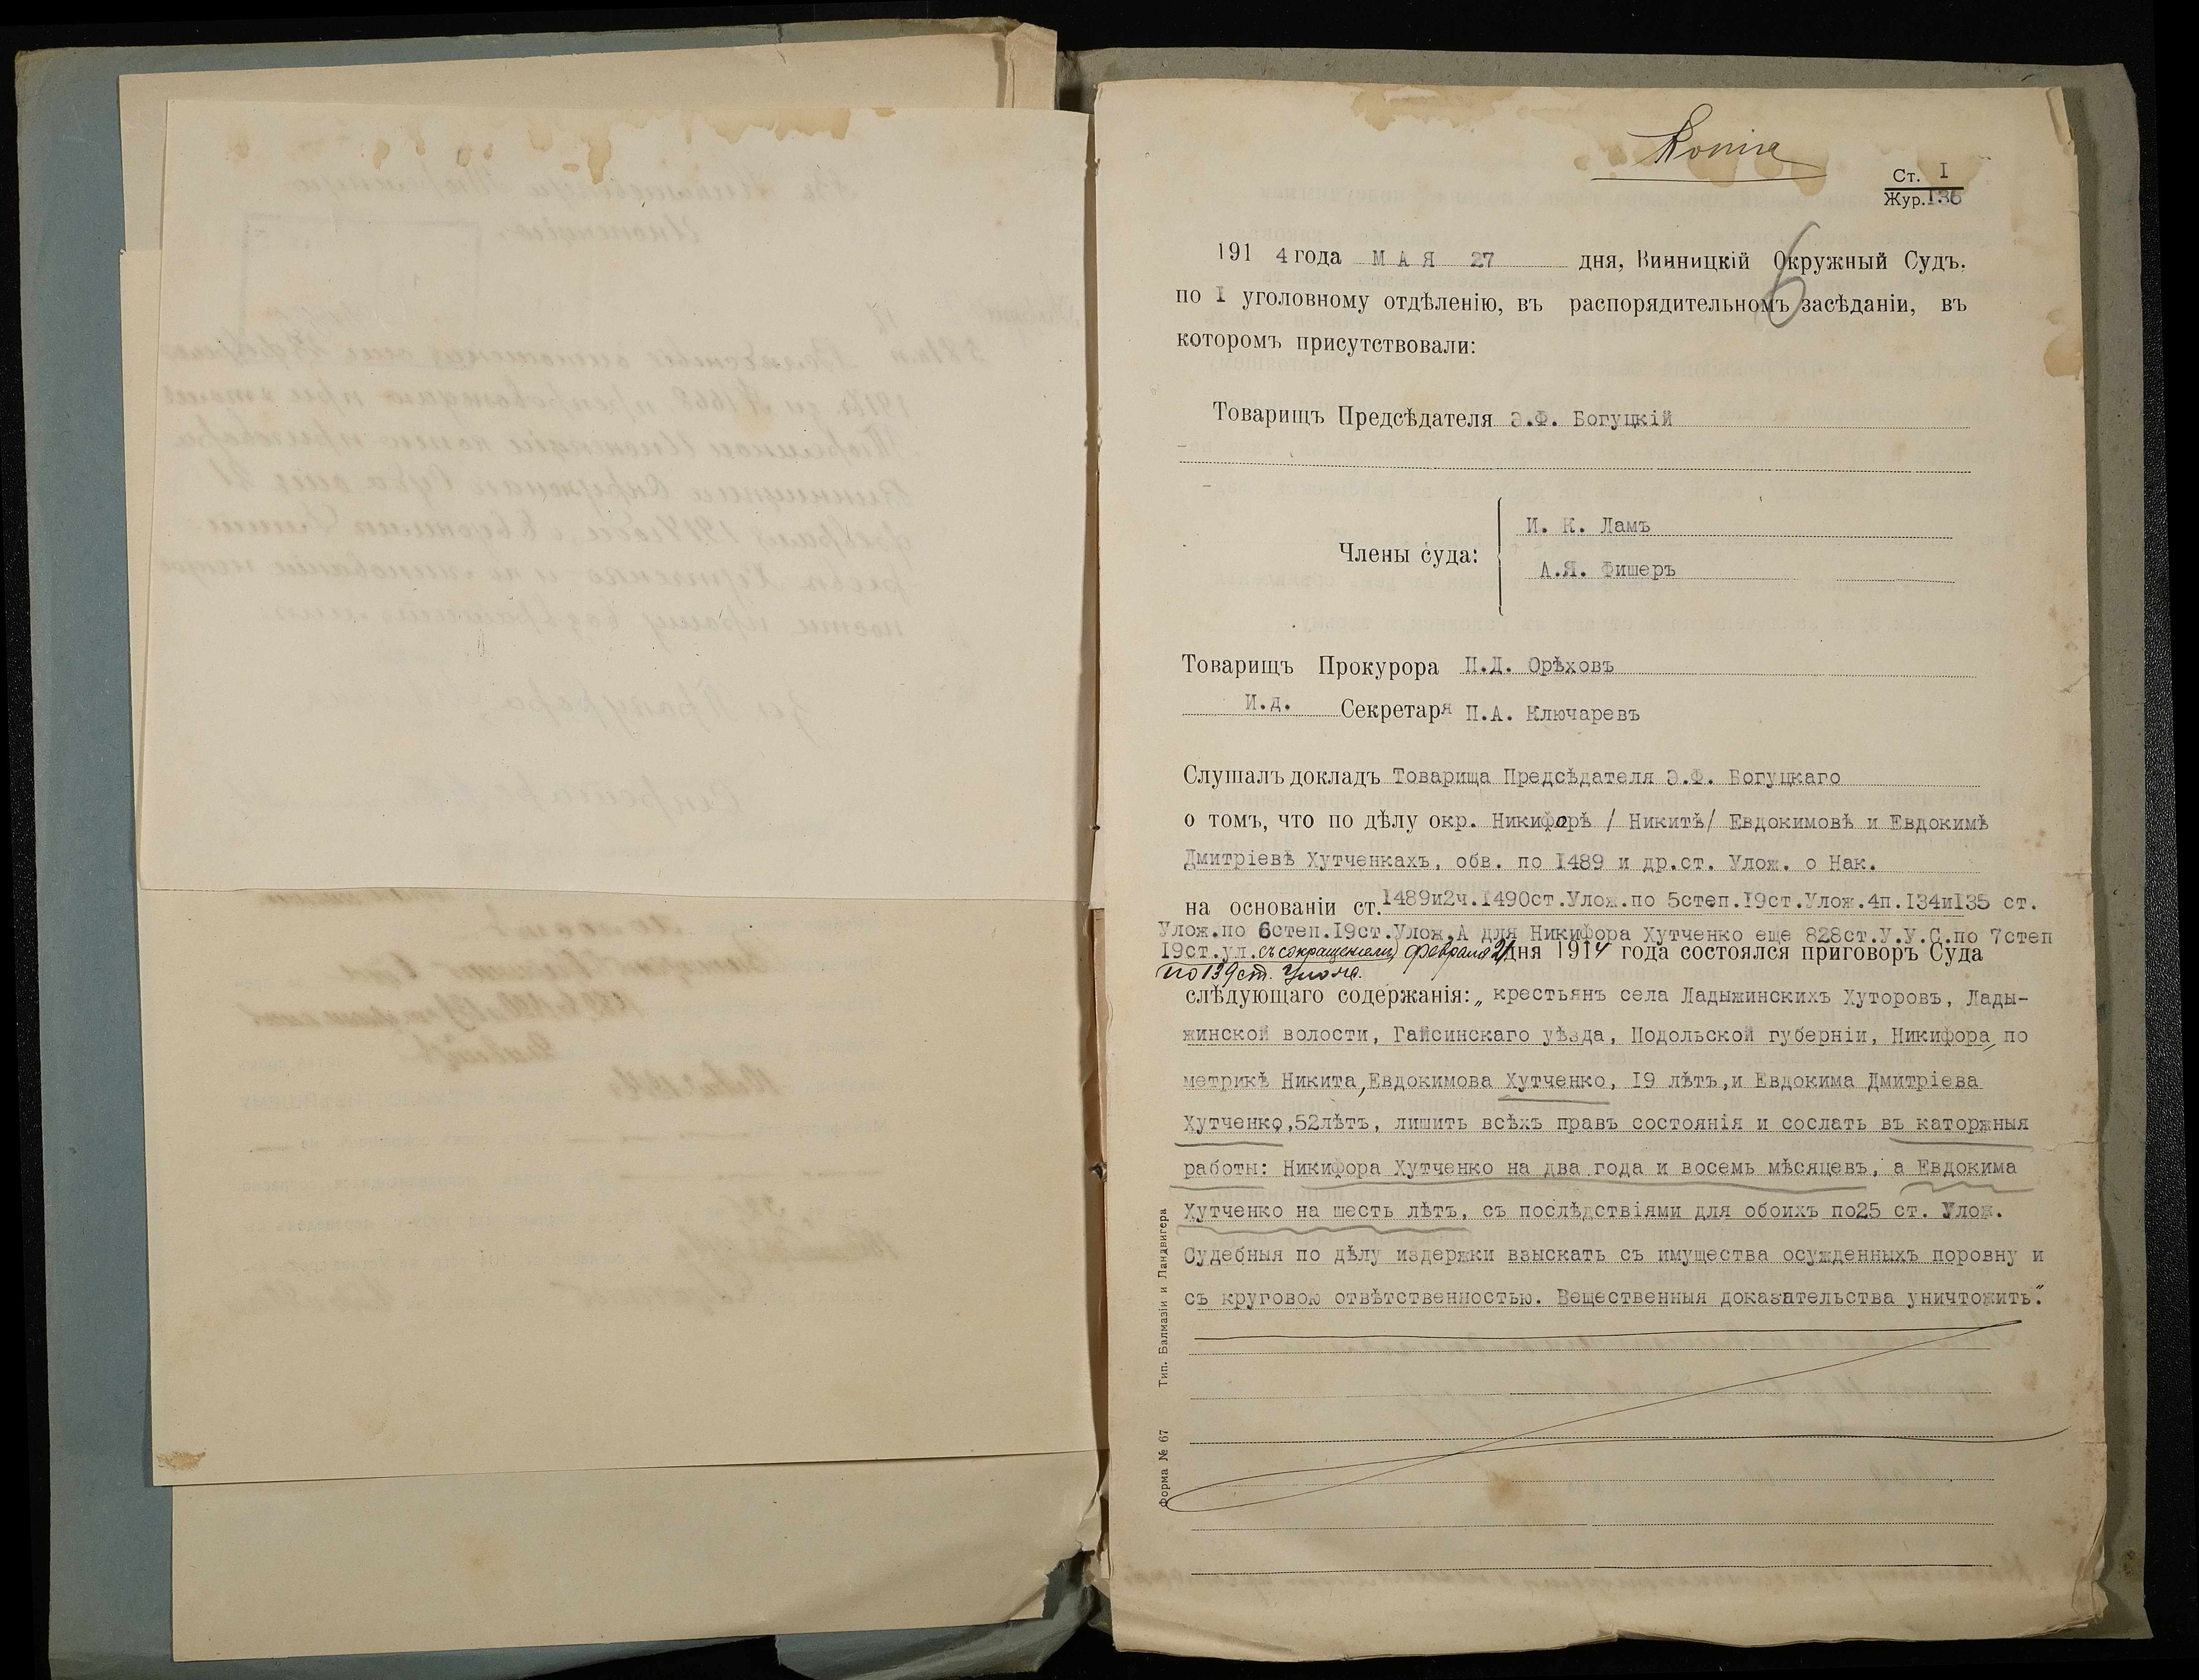 Копія
Ст. I
Жур. 136
6
1914 года МАЯ 27 дня, Винницкій Окружный Судъ,
по I уголовному отдѣленію, въ распорядительномъ засѣданіи, въ
которомъ присутствовали:
Товарищъ Предсѣдателя Э.Ф. Богуцкій
Члены суда:
И. К. Ламъ
А.Я. Фишеръ
Товарищъ Прокурора П.Д. Орѣховъ
И.д. Секретаря П.А. Ключаревъ
Слушалъ докладъ Товарища Предсѣдателя Э.Ф. Богуцкаго
о томъ, что по дѣлу окр. Никифорѣ / Никитѣ/ Евдокимовѣ и Евдокимѣ
Дмитріевѣ Хутченкахъ, обв. по 1489 и др.ст. Улож. о Нак.
на основаніи ст. 1489и2ч.1490ст.Улож.по 5степ.19ст.Улож.4п.134и135 ст.
Улож.по 6степ.19ст.Улож.А для Никифора Хутченко еще 828ст.У.У.С.по 7степ
19ст.ул. съ сокращеніемъ февраля 21 дня 1914 года состоялся приговоръ Суда
по 139 ст. Улож.
слѣдующаго содержанія: „ крестьянъ села Ладыжинскихъ Хуторовъ, Лады-
жинской волости, Гайсинскаго уѣзда, Подольской губерніи, Никифора, по
метрикѣ Никита, Евдокимова Хутченко, 19 лѣтъ,и Евдокима Дмитріева
Хутченко,52лѣтъ, лишить всѣхъ правъ состоянія и сослать въ каторжныя
работы: Никифора Хутченко на два года и восемь мѣсяцевъ, а Евдокима
Хутченко на шесть лѣтъ, съ послѣдствіями для обоихъ по25 ст. Улож.
Судебныя по дѣлу издержки взыскать съ имущества осужденныхъ поровну и
съ круговою отвѣтственностью. Вещественныя доказательства уничтожить."
Форма № 67 Тип. Балмазіи и Ландвигера